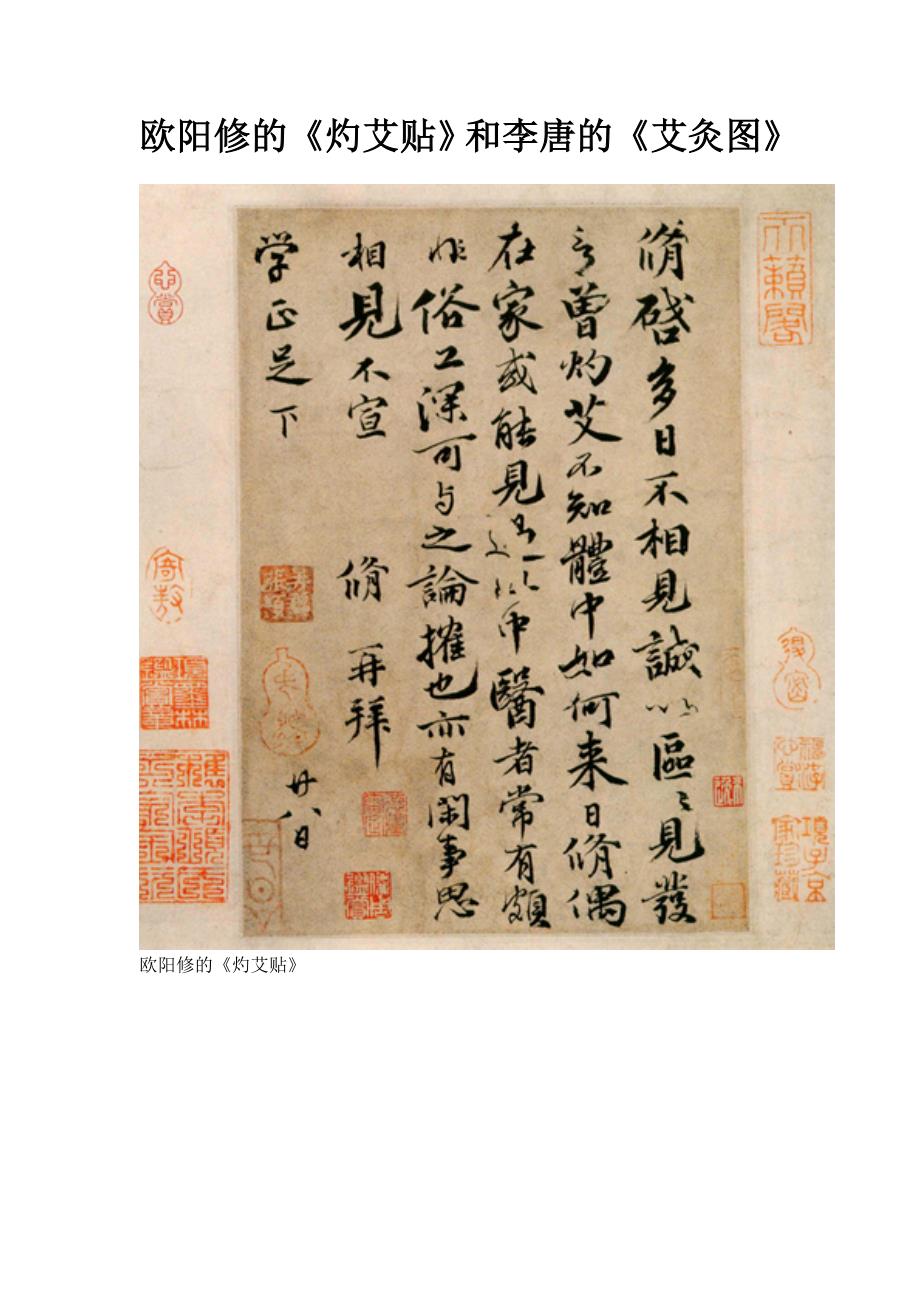 欧阳修的《灼艾贴》和李唐的《艾灸图》
脩啓多日不相見誠以區々見發
言曾灼艾不知體中如何来日脩偶
在家或能見過此中醫者常有頗
非俗工深可与之論搉也亦有閑事思
相見不宣 脩再拜
学正足下 廿八日
天籟閣
項子京家珍藏
欧阳修的《灼艾贴》